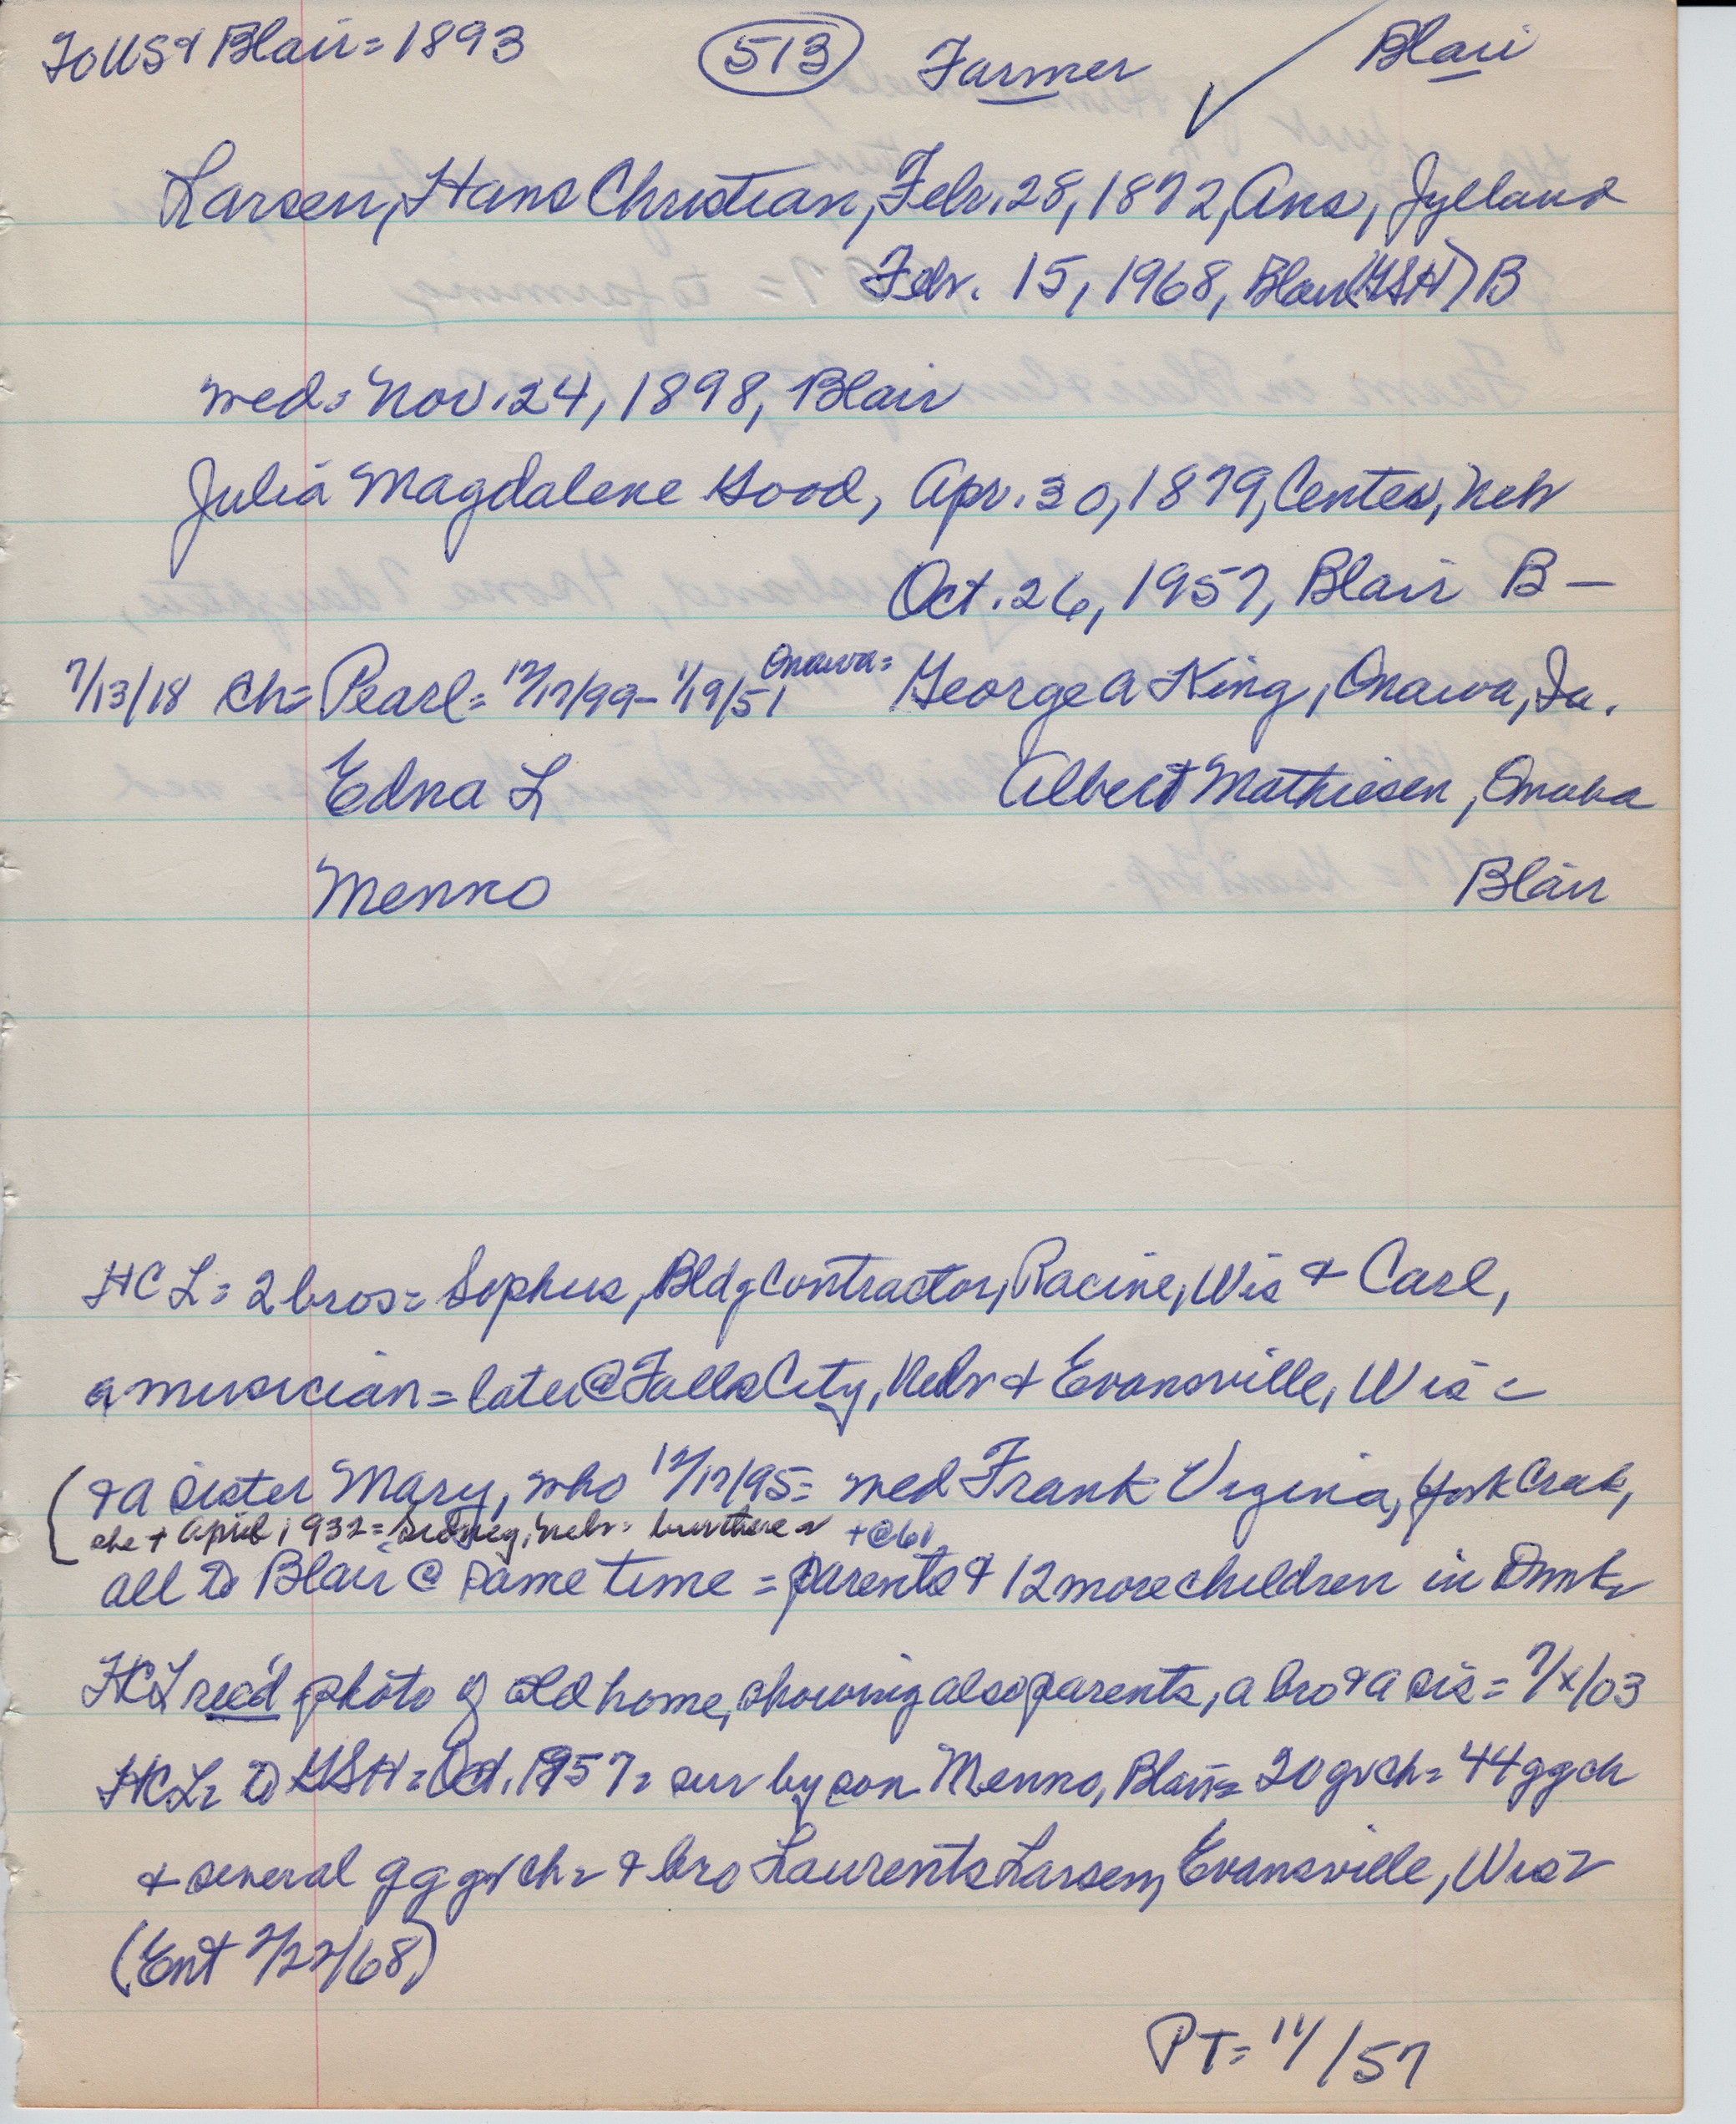 To US & Blair = 1893 513 Farmer Blair
Larsen, Hans Christian, Febr. 28, 1872, Ans, Jylland
Febr. 15, 1968, Blair (GSH) B
med = Nov. 24, 1898, Blair
Julia Magdalene Good, Apr. 30, 1879, Center, Nebr
Oct. 26, 1957, Blair B —
7/13/18 Ch = Pearl = 12/17/99 - 1/19/51 Onawa = George A King, Onawa, Ia.
Edna L Albert Mathiesen, Omaha
Menno Blair
HCL = 2 bros = Sophus, Bldg Contractor, Racine, Wis & Carl,
a musician = later @ Falls City, Nebr & Evansville, Wis =
(& a sister Mary, who 12/17/95 = med Frank Virginia, York Creek,
she + April 1932 = Sidney, Nebr = + @ 61
all to Blair @ same time = parents & 12 more children in Dmk =
HCL rec'd photo of old home, showing also parents, a bro & a sis = 7/x/03
HCL = to GSH = Oct. 1957 = sur by son Menno, Blair = 20 grch = 44 ggch
& several gg grch = & bro Laurents Larsen, Evansville, Wis =
(Ent 2/22/68)
PT = 11/57